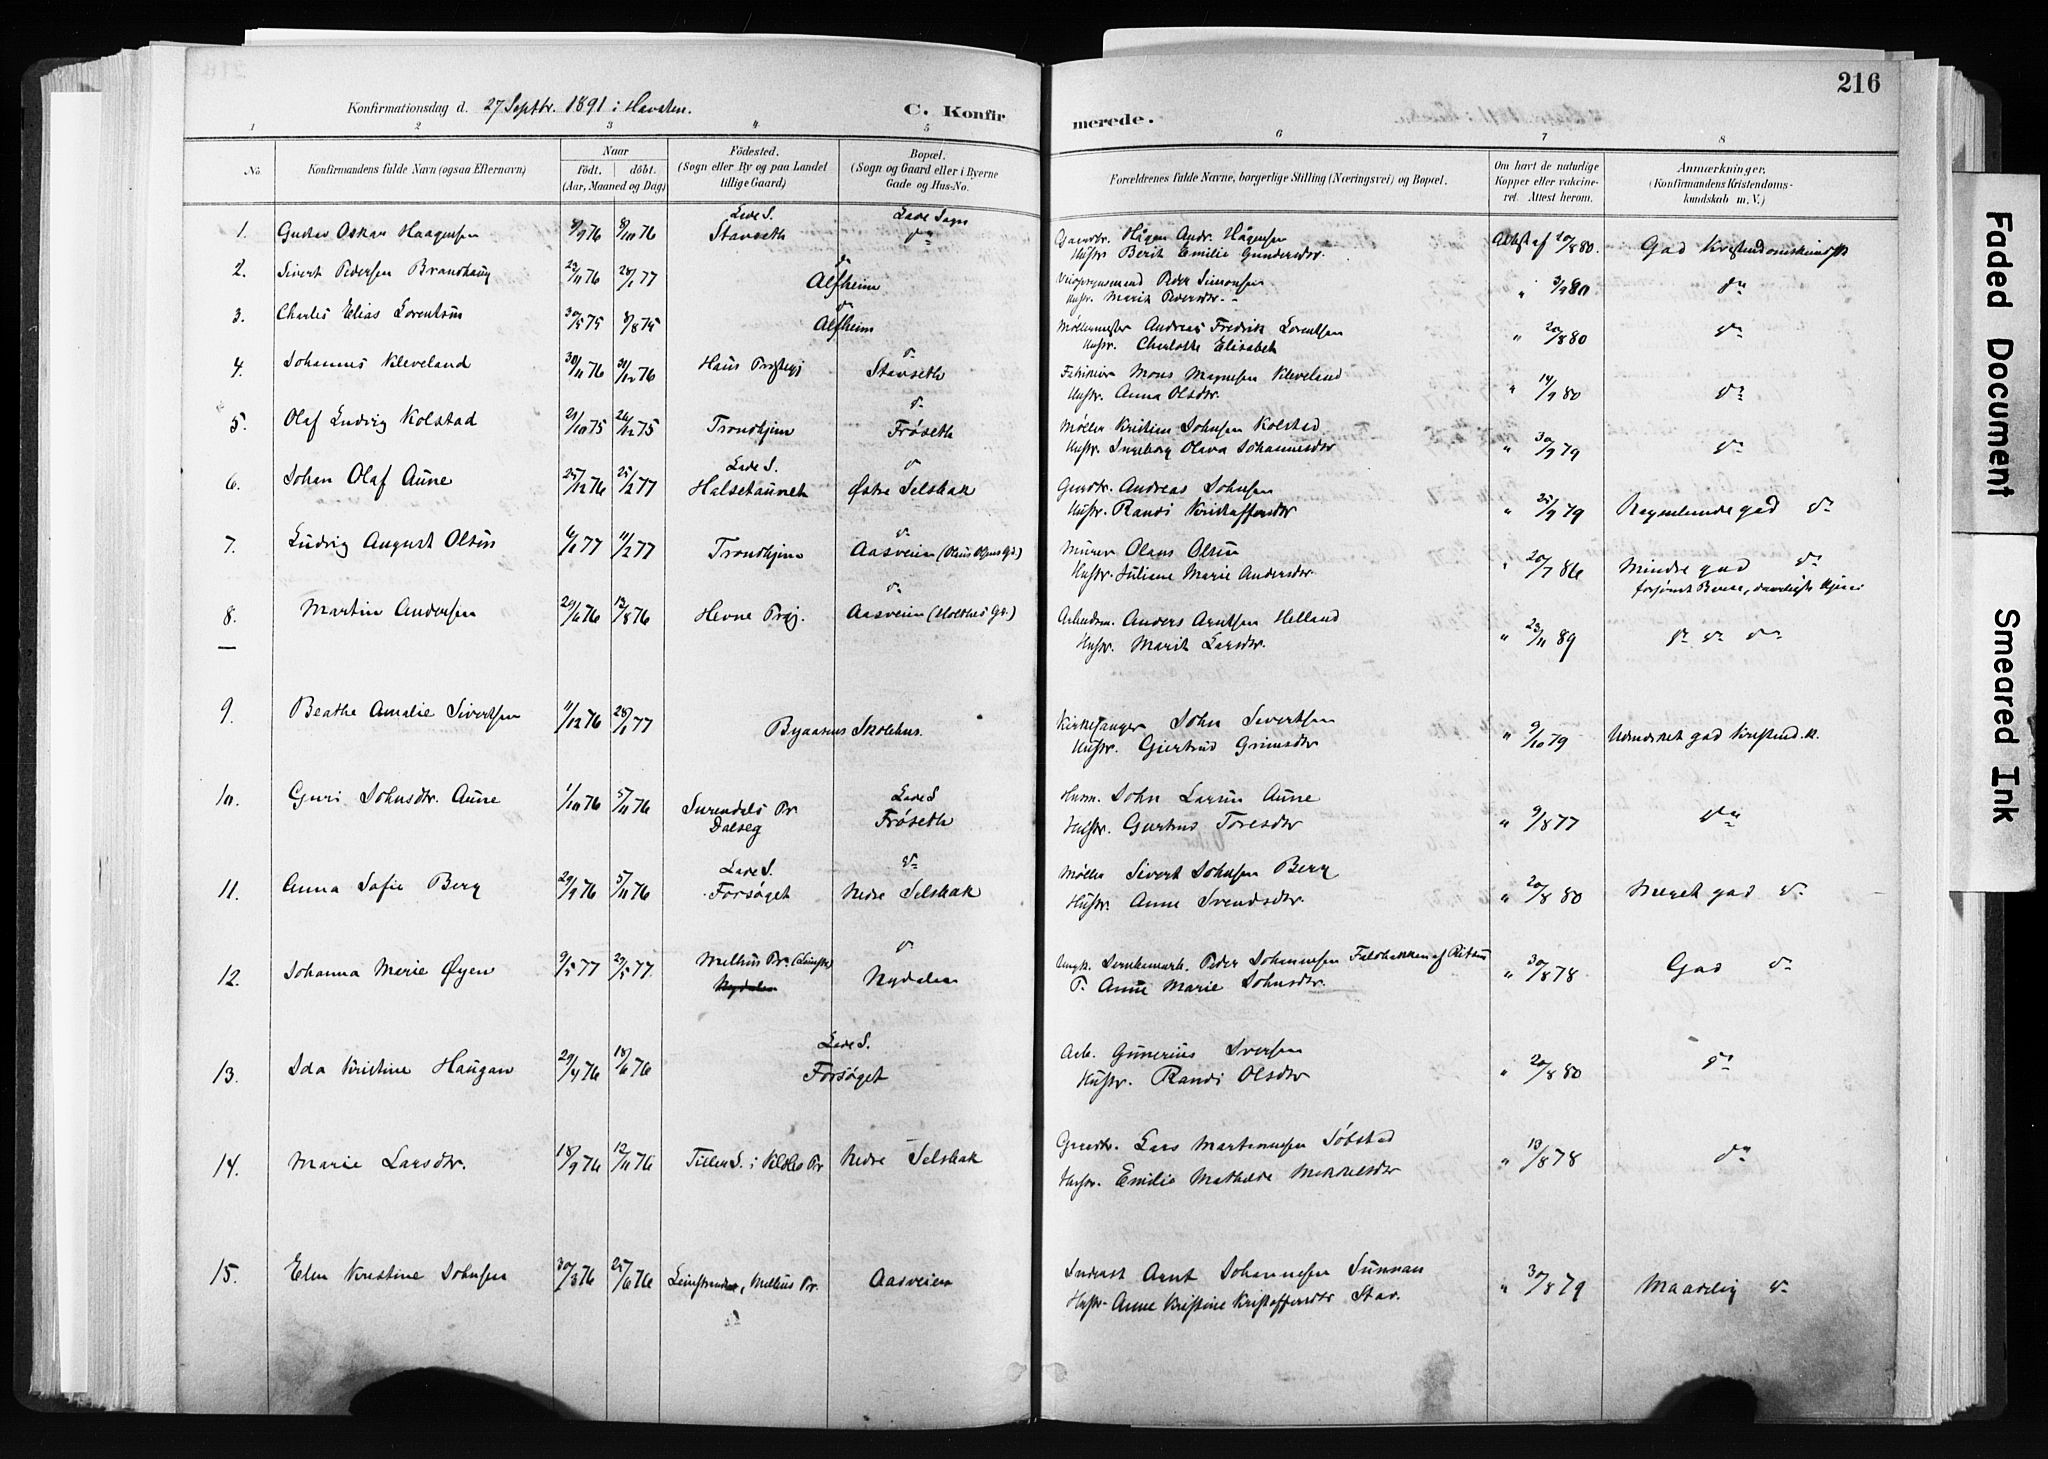 216
Konfirmationsdag d. 27 Septbr. 1891 i Havsten.
C. Konfirmerede.
1 2 3 4 5 6 7 8
No. Konfirmandens fulde Navn (ogsaa Efternavn) Naar født. døbt. (Aar, Maaned og Dag) Fødested. (Sogn eller By og paa Landet tillige Gaard) Bopæl. (Sogn og Gaard eller i Byerne Gade og Hus-No. Forældrenes fulde Navne, borgerlige Stilling (Næringsvei) og Bopæl. Om havt de naturlige Kopper eller vakcineret. Attest herom. Anmærkninger. (Konfirmandens Kristendomskundskab m. V.)
1. Gustav Oskar Haagensen 8/10 76 Lade S. Stavseth Lade Sogn do Gaardbr. Hågen Andr. Hågensen
Hustr. Berit Emilie Gundersdtr. Attest af 20/8 80. God Kristendomskundsk.
2. Sivert Pedersen Brandhaug 28/1 77 do Alfheim Peder Simonsen
Hustr. Marit Pedersdtr. " 3/9 80 do
3. Charles Elias Lorentsen 30/5 75 8/8 75 do Alfheim Møllermester Andreas Fredrik Lorentsen
Hustr. Charlotte Elisabeth " 20/8 80 do
4. Johannes Kleveland 30/11 76 31/12 76 Haus Præstegj do Stavseth Mons Magnesen Kleveland
Hustr. Anna Olsdtr. " 14/9 80 do
5. Olaf Ludvig Kolstad 21/10 75 26/12 75 Trondhjem do Frøseth Møller Kristian Johnsen Kolstad
Hustr. Ingeborg Olava Johannesdtr " 30/9 79 do
6. Johan Olaf Aune 25/12 76 25/2 77 Lade S. Halsetaunet do Østre Selsbak Gaardbr. Andreas Johnsen
Hustr. Randi Kristoffersdtr " 9 79 Nogenlunde god do
7. Ludvig August Olsen 6/1 77 11/2 77 Trondhjem do Aasveien Murer Olaus Olsen
Hustr. Juliane Marie Andersdtr. " 20/7 86 Mindre god do
8. Martin Andersen 29/6 76 13/8 76 Hevne Præj. do Aasveien Arbeidsm. Anders Arntsen Helland
Hustr. Marit Larsdtr. " 23/11 89 do do do
9. Beathe Amalie Sivertsen 11/12 76 28/1 77 Byaasens Skolehus. Kirkesanger John Sivertsen
Hustr. Gjertrud Grimsdtr " 9/10 79 Udmærket god Kristend. k.
10. Guri Johnsdtr. Aune 1/10 76 5/11 76 Surendals Pr Dalseg Lade S Frøseth Husm. John Larsen Aune
Hustr. Gjertrud Toresdtr " 9/8 77 do
11. Anna Sofie Berg 29/9 76 5/11 76 Lade S. Forsøget do Nedre Selsbak Møller Sivert Johnsen Berg
Hustr. Anne Svendsdtr. " 20/8 80 Meget god do
12. Johanna Marie Øyen 9/5 77 29/5 77 Melhus Pr. do Nydalen Ungk. Peder Johannesen
P. Anne Marie Johnsdtr. " 30/8 78 God do
13. Ida Kristine Haugan 29/4 76 18/6 76 Lade S. Forsøget Arb. Gunerius Iversen
Hustr. Randi Olsdtr " 20/8 80 do
14. Marie Larsdtr. 18/9 76 12/11 76 Tiller S. i Klæbo Pr Nedre Selsbak Gaardbr. Lars Martinusen Søbstad
Hustr. Emilie Mathilde Mikkelsdtr " 13/8 78 do
15. Elen Kristine Johnsen 30/3 76 25/6 76 Leinstranden, Melhus Pr. Aasveien Inderst Arnt Johannesen Sunnan
Hustr. Anne Kristine Kristoffersdtr Stav. " 30/8 79 Maadelig do
Faded Document
Smeared Ink